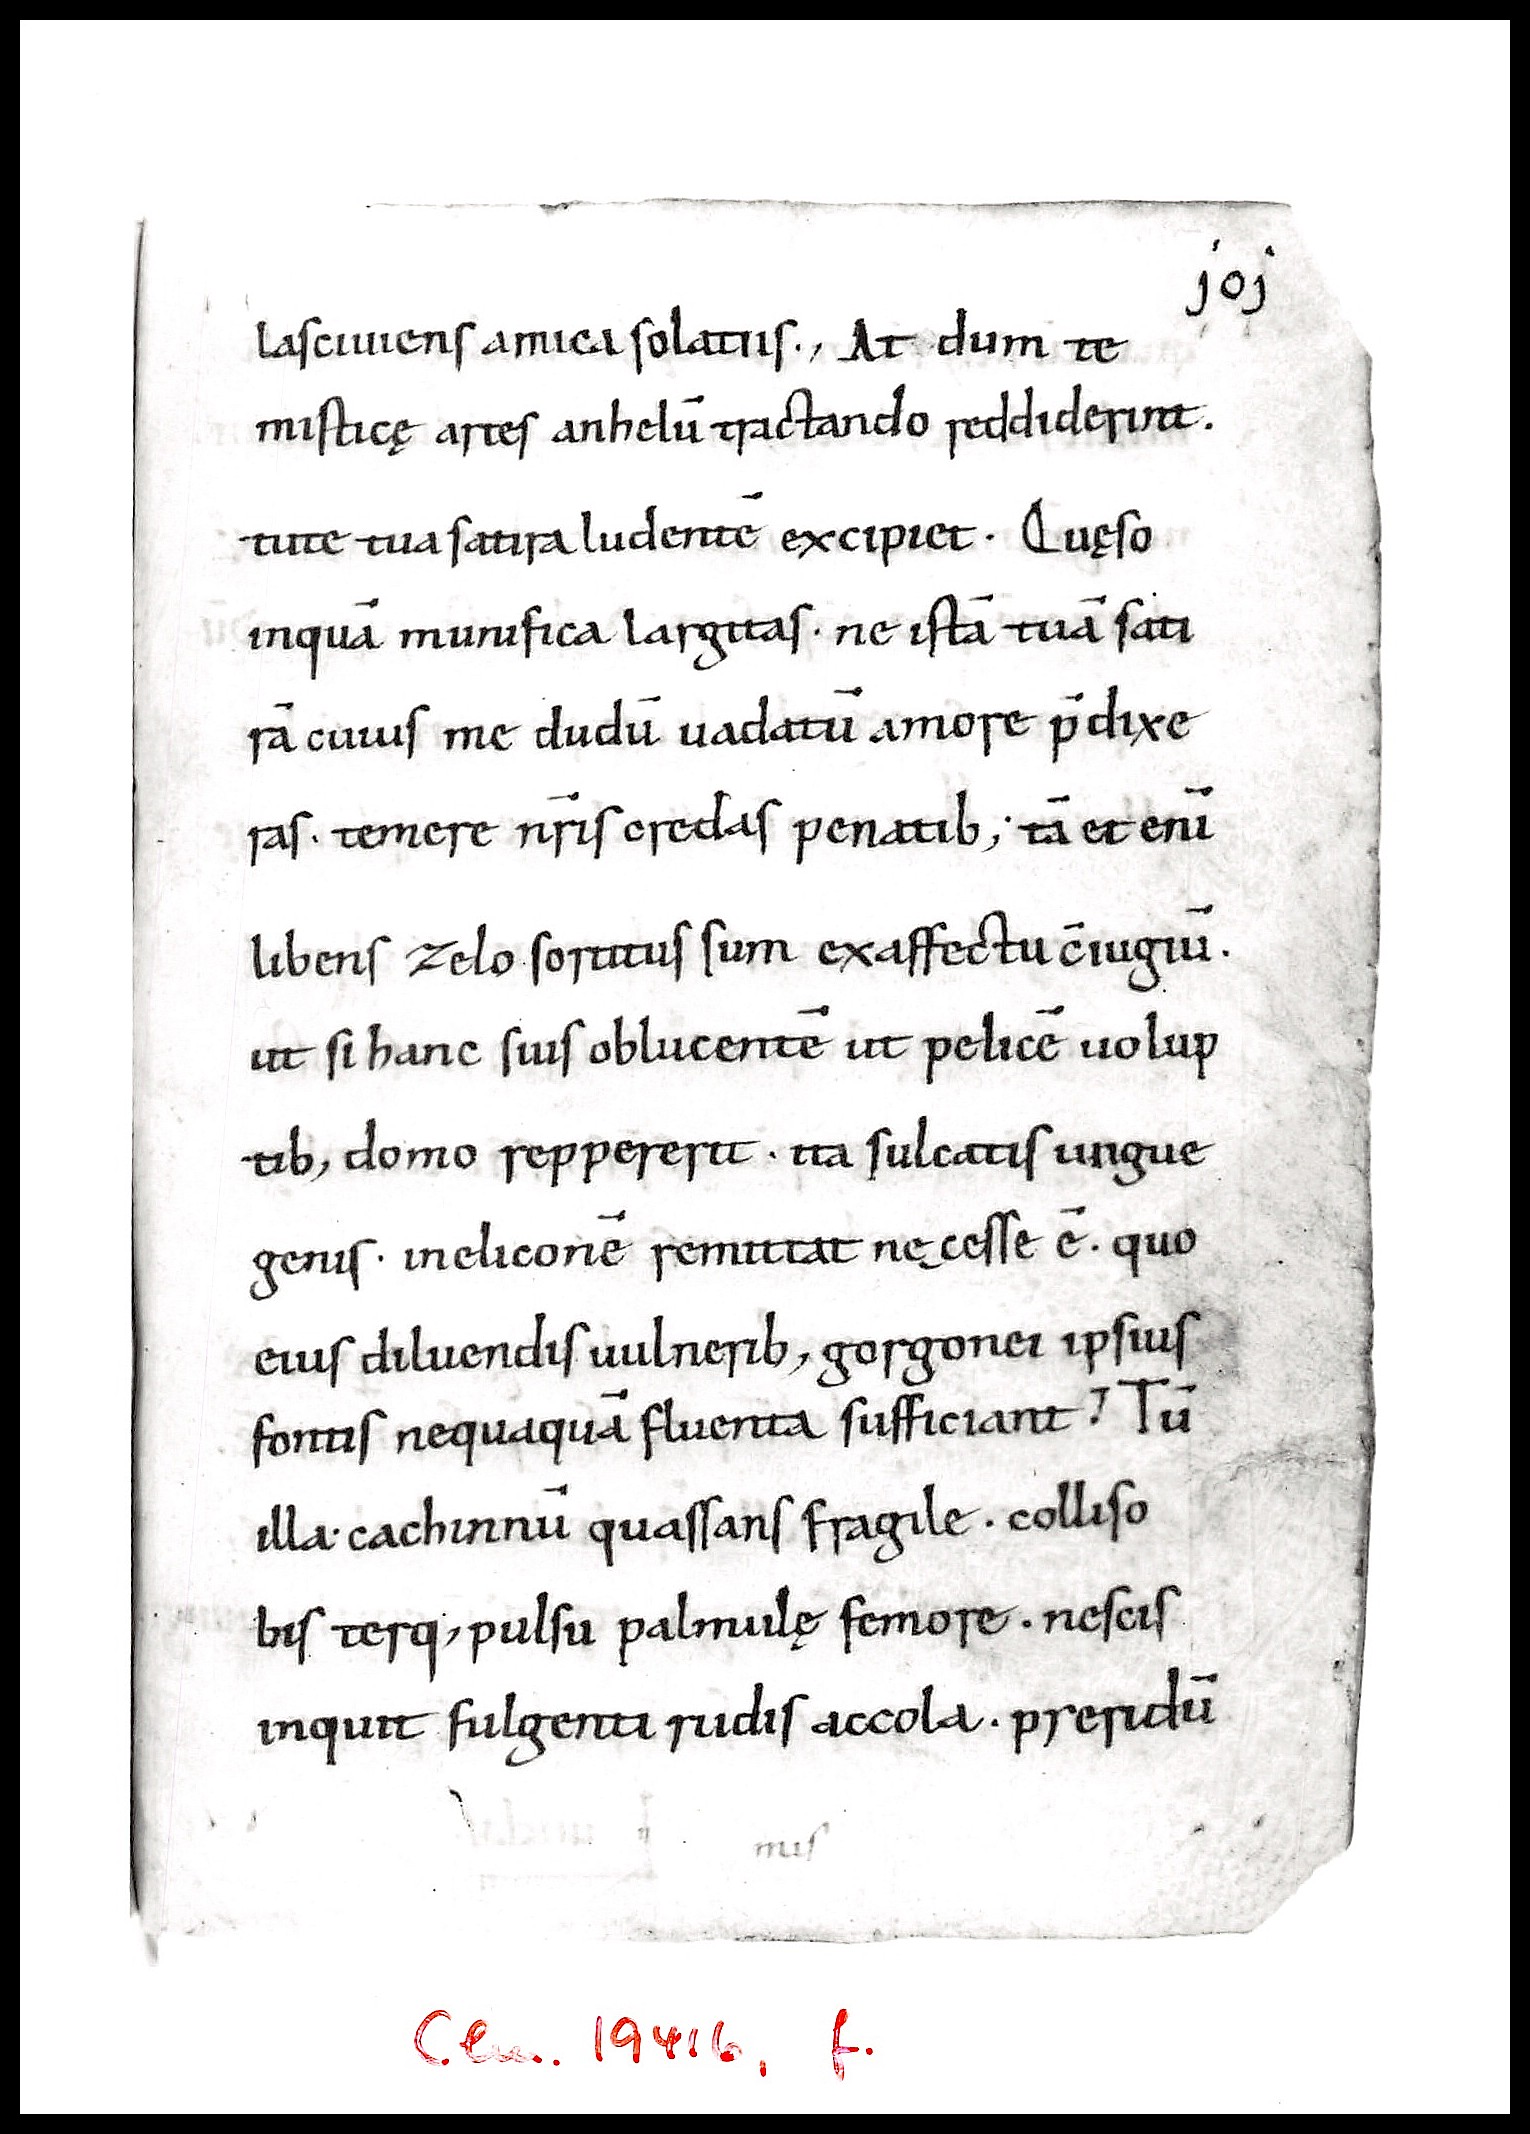 joj
lasciuiens amica solatiis., At dum te
misticę artes anhelū tractando reddiderint.
tute tua satira ludentē excipiet. Quęso
inquā munifica largitas. ne istā tuā sati
rā cuius me dudū uadatū amore p̄dixe
ras. temere nr̄is credas penatib; tā et enī
libens zelo sortitus sum ex affectu c̄iugiū.
ut si hanc suis oblucentē ut pelicē uolup
tib, domo reppererit. ita sulcatis ungue
genis. in eliconē remittat nęcesse ē. quo
eius diluendis uulnerib, gorgonei ipsius
fontis nequaquā fluenta sufficiant? Tū
illa. cachinnū quassans fragile. colliso
bis terq, pulsu palmulę femore. nescis
inquit fulgenti rudis accola. preridū
mis
Clm. 19416, f.